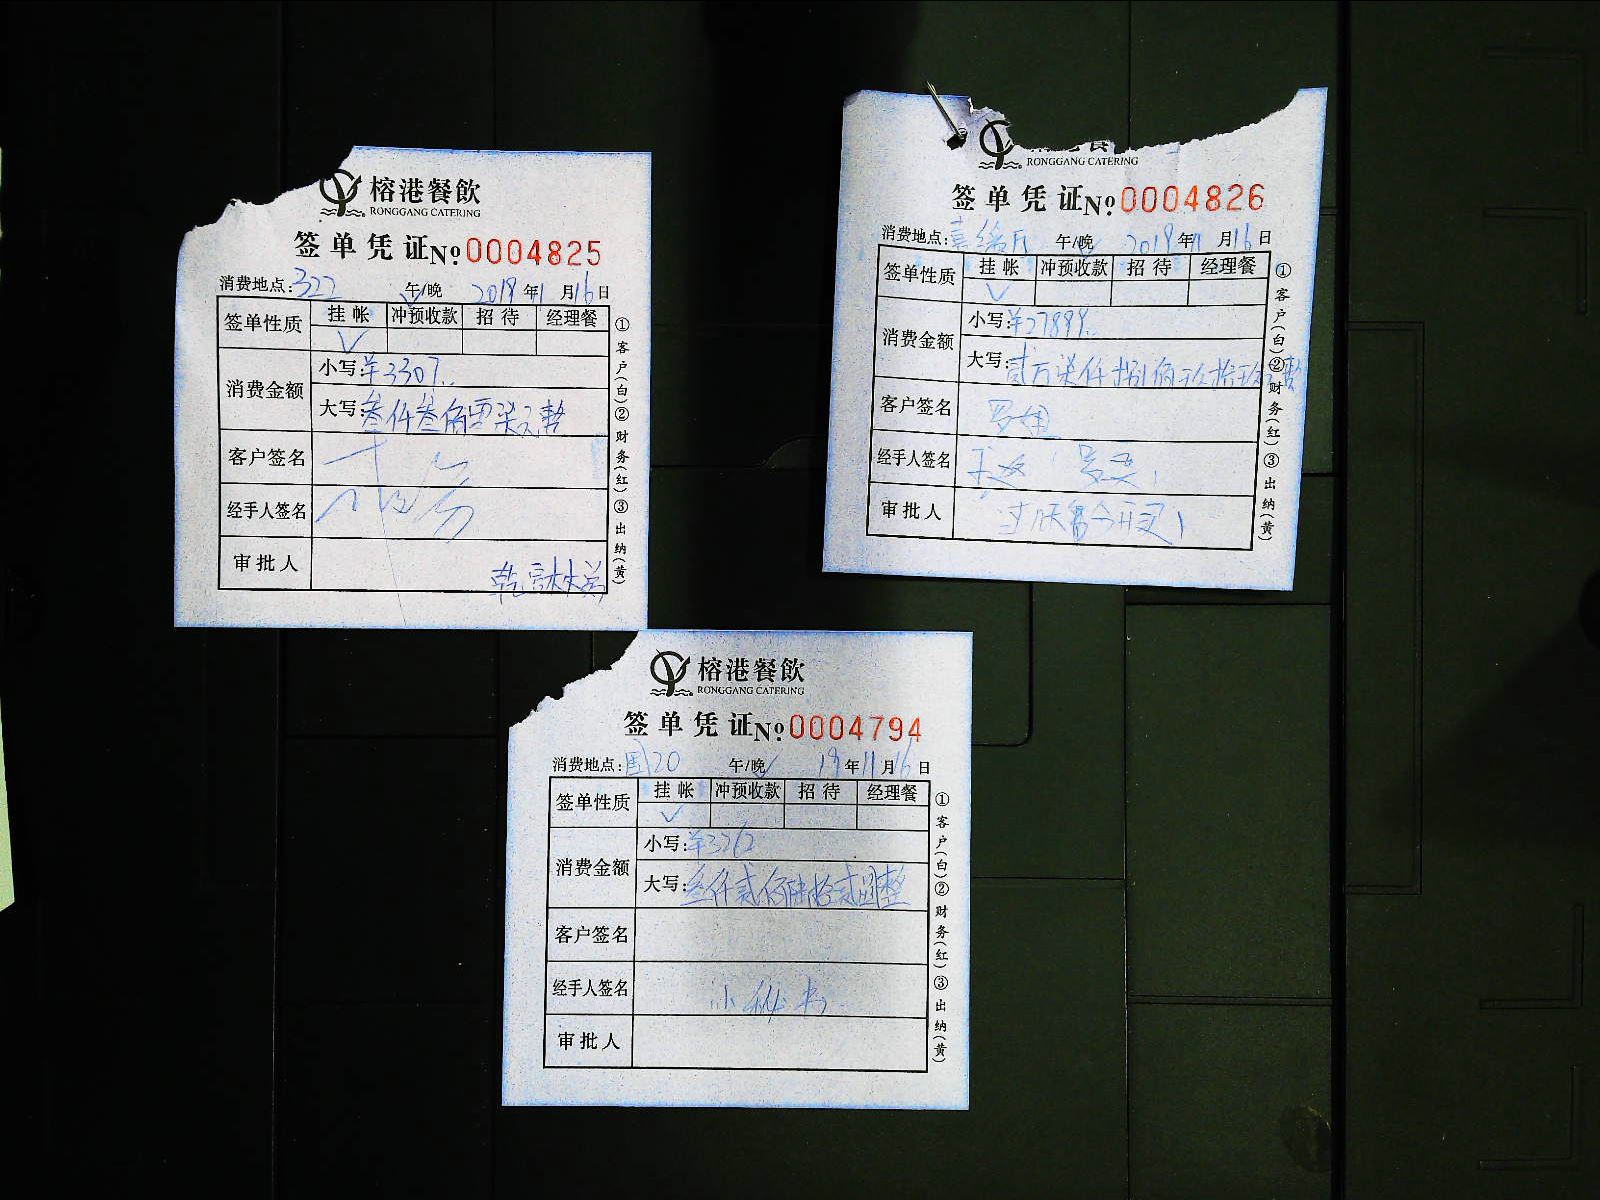 榕港餐飲
RONGGANG CATERING
签单凭证 № 0004825
消费地点: 322 午/晚 2019年11月16日
签单性质 挂帐 冲预收款 招待 经理餐
消费金额 小写: ¥3307
大写: 叁仟叁佰零柒元整
客户签名
经手人签名
审批人
①客户(白)②财务(红)③出纳(黄)
RONGGANG CATERING
签单凭证 № 0004826
消费地点: 午/晚 2019年11月16日
签单性质 挂帐 冲预收款 招待 经理餐
消费金额 小写: ¥27899
大写: 贰万柒仟捌佰玖拾玖元整
客户签名
经手人签名
审批人
①客户(白)②财务(红)③出纳(黄)
榕港餐飲
RONGGANG CATERING
签单凭证 № 0004794
消费地点: 国20 午/晚 19年11月16日
签单性质 挂帐 冲预收款 招待 经理餐
消费金额 小写: ¥3262
大写: 叁仟贰佰陆拾贰圆整
客户签名
经手人签名 小秘书
审批人
①客户(白)②财务(红)③出纳(黄)